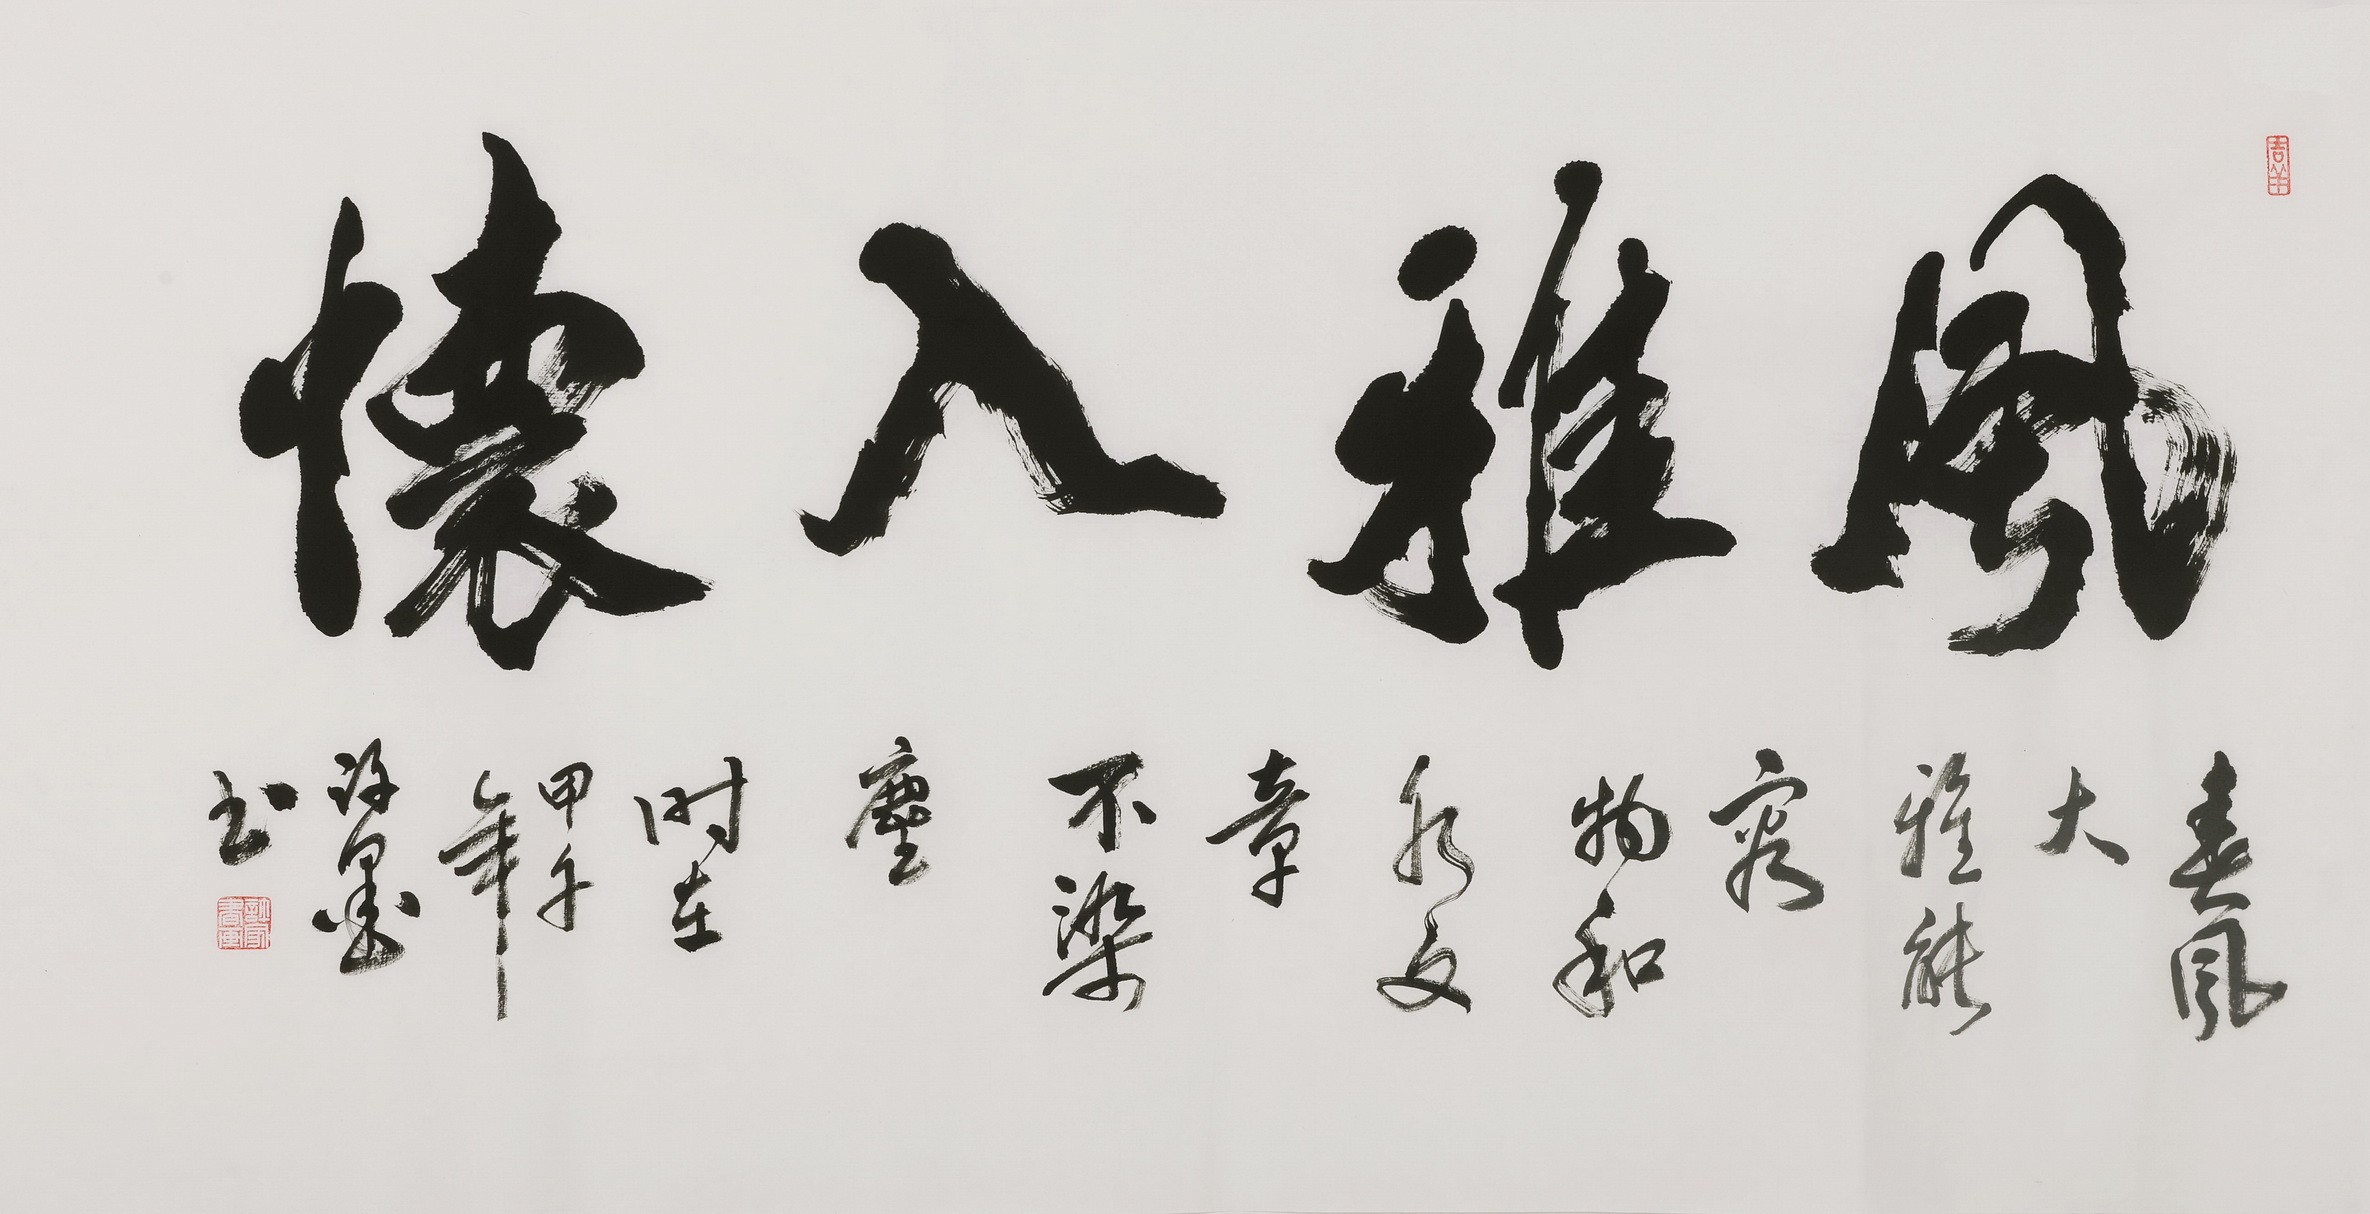 風雅入懷
春風
大
雅能
容
物和
水文
章
不染
塵
时在
甲午
年
书